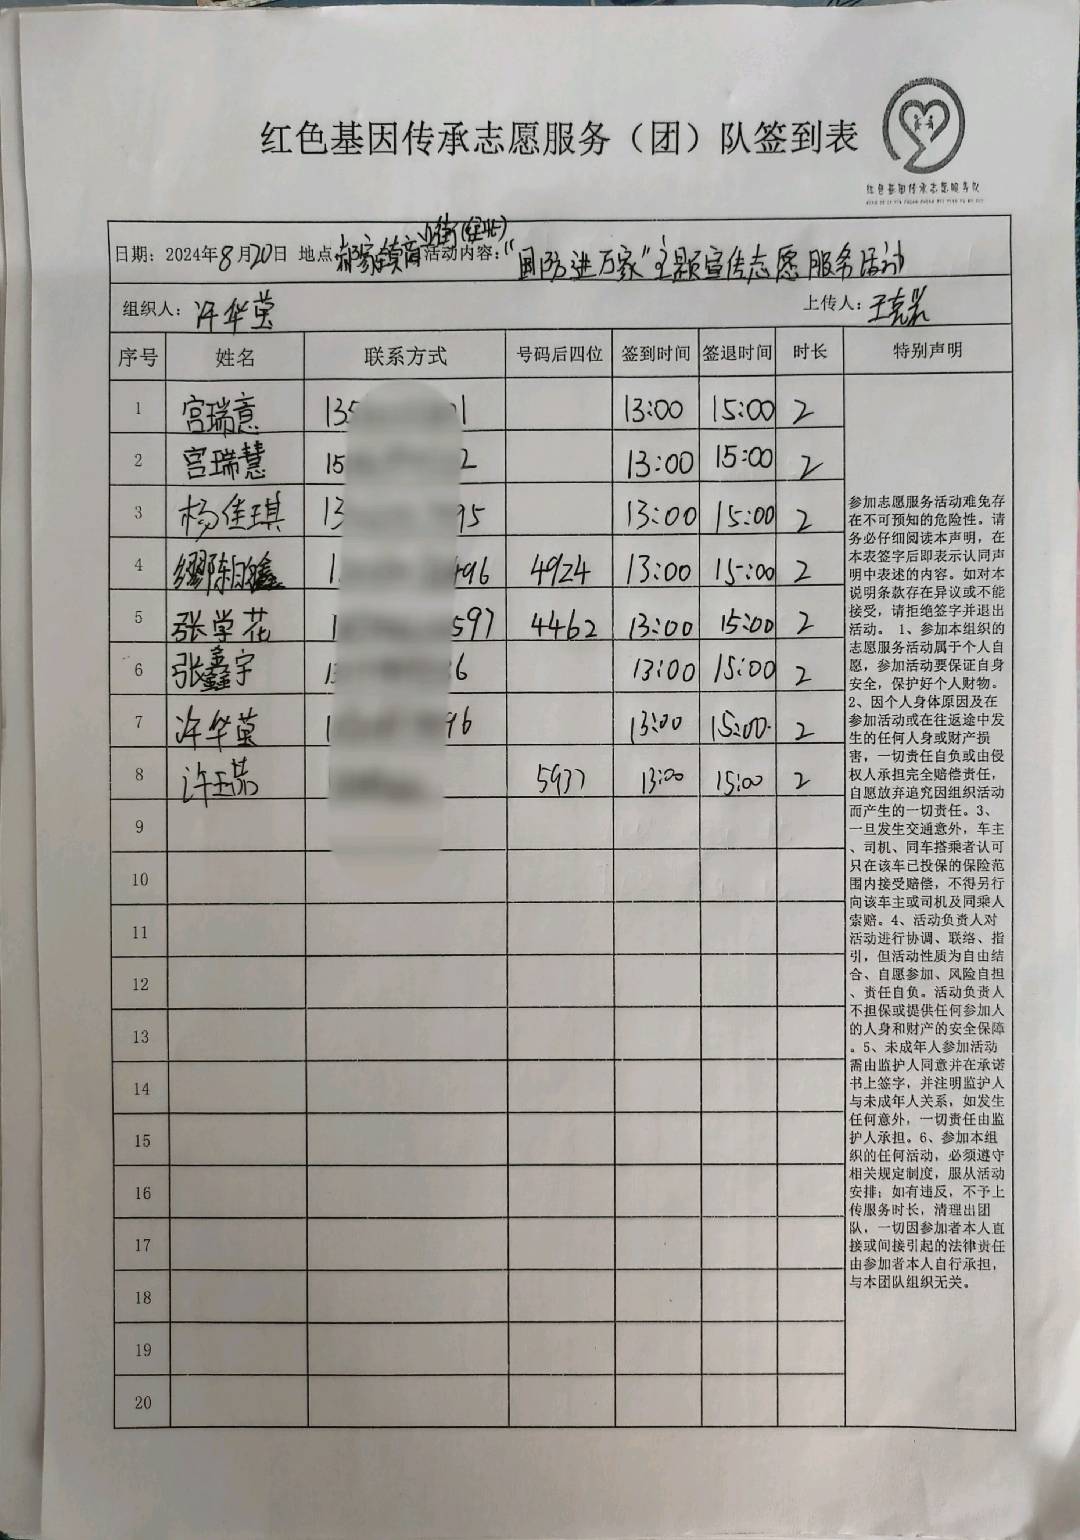 红色基因传承志愿服务（团）队签到表
红色基因传承志愿服务队
日期：2024年8月20日 地点 郝家镇商业街(经北) 活动内容：“国防进万家”主题宣传志愿服务活动
组织人：许华萤 上传人：
序号 姓名 联系方式 号码后四位 签到时间 签退时间 时长 特别声明
1 宫瑞意 135 1 13:00 15:00 2
2 宫瑞慧 15 2 13:00 15:00 2
3 杨佳琪 13 95 13:00 15:00 2
4 1 96 4924 13:00 15:00 2
5 张学花 1 597 4462 13:00 15:00 2
6 张鑫宇 13 6 13:00 15:00 2
7 许华萤 1 96 13:00 15:00 2
8 5937 13:00 15:00 2
9
10
11
12
13
14
15
16
17
18
19
20
参加志愿服务活动难免存
在不可预知的危险性。请
务必仔细阅读本声明，在
本表签字后即表示认同声
明中表述的内容。如对本
说明条款存在异议或不能
接受，请拒绝签字并退出
活动。 1、参加本组织的
志愿服务活动属于个人自
愿，参加活动要保证自身
安全，保护好个人财物。
2、因个人身体原因及在
参加活动或在往返途中发
生的任何人身或财产损
害，一切责任自负或由侵
权人承担完全赔偿责任，
自愿放弃追究因组织活动
而产生的一切责任。3、
一旦发生交通意外，车主
、司机、同车搭乘者认可
只在该车已投保的保险范
围内接受赔偿，不得另行
向该车主或司机及同乘人
索赔。4、活动负责人对
活动进行协调、联络、指
引，但活动性质为自由结
合、自愿参加、风险自担
、责任自负。活动负责人
不担保或提供任何参加人
的人身和财产的安全保障
。5、未成年人参加活动
需由监护人同意并在承诺
书上签字，并注明监护人
与未成年人关系，如发生
任何意外，一切责任由监
护人承担。6、参加本组
织的任何活动，必须遵守
相关规定制度，服从活动
安排；如有违反，不予上
传服务时长，清理出团
队，一切因参加者本人直
接或间接引起的法律责任
由参加者本人自行承担，
与本团队组织无关。